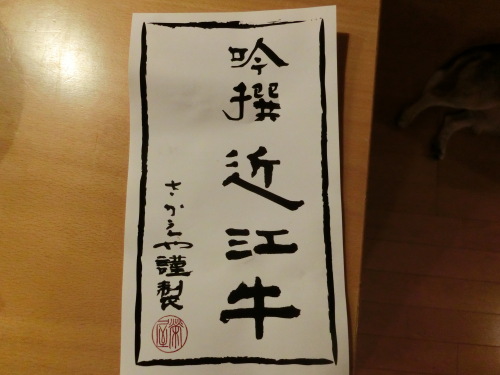 吟撰近江牛
さかえや謹製